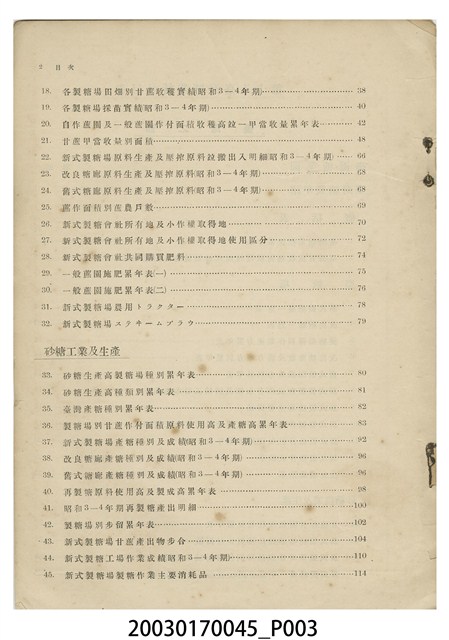 2 目次
18. 各製糖場田畑別甘蔗收穫實績(昭和3—4年期)…38
19. 各製糖場採苗實績(昭和3—4年期)…40
20. 自作蔗園及一般蔗園作付面積收穫高竝一甲當收量累年表…42
21. 甘蔗甲當收量別面積…48
22. 新式製糖場原料生產及壓搾原料竝搬出入明細(昭和3—4年期)…66
23. 改良糖廍原料生產及壓搾原料(昭和3—4年期)…68
24. 舊式糖廍原料生產及壓搾原料(昭和3—4年期)…68
25. 蔗作面積別蔗農戶數…69
26. 新式製糖會社所有地及小作權取得地…70
27. 新式製糖會社所有地及小作權取得地使用區分…72
28. 新式製糖會社共同購買肥料…74
29. 一般蔗園施肥累年表(一)…75
30. 一般蔗園施肥累年表(二)…76
31. 新式製糖場農用トラクター…78
32. 新式製糖場スチームプラウ…79
砂糖工業及生產
33. 砂糖生產高製糖場種別累年表…80
34. 砂糖生產高種類別累年表…81
35. 臺灣產糖種別累年表…82
36. 製糖場別甘蔗作付面積原料使用高及產糖高累年表…83
37. 新式製糖場產糖種別及成績(昭和3—4年期)…92
38. 改良糖廍產糖種別及成績(昭和3—4年期)…96
39. 舊式糖廍產糖種別及成績(昭和3—4年期)…96
40. 再製糖原料使用高及製成高累年表…98
41. 昭和3—4年期再製糖產出明細…100
42. 製糖場別步留累年表…102
43. 新式製糖場甘蔗產出物步合…104
44. 新式製糖工場作業成績(昭和3—4年期)…110
45. 新式製糖場製糖作業主要消耗品…114
20030170045_P003